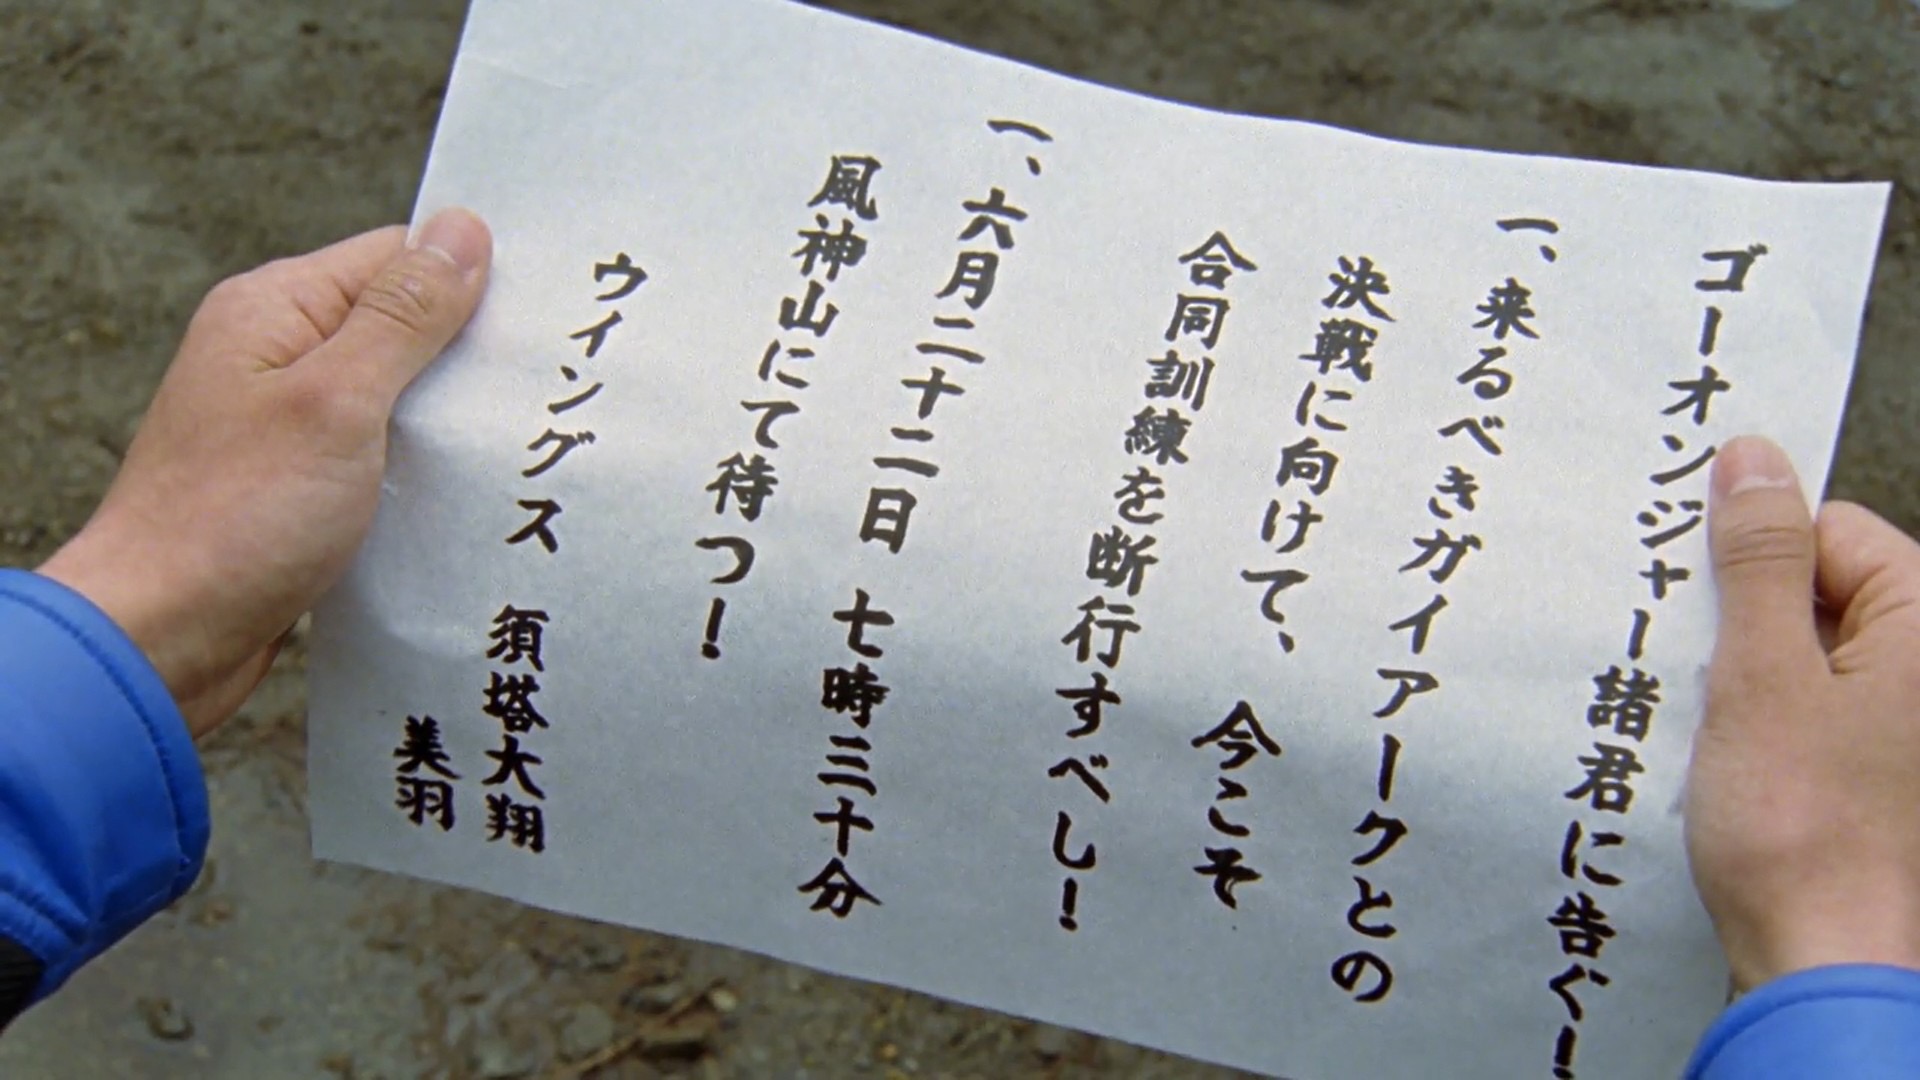 ゴーオンジャー諸君に告ぐ!
一、来るべきガイアークとの
決戦に向けて、今こそ
合同訓練を断行すべし!
一、六月二十二日 七時三十分
風神山にて待つ!
ウイングス 須塔大翔
美羽